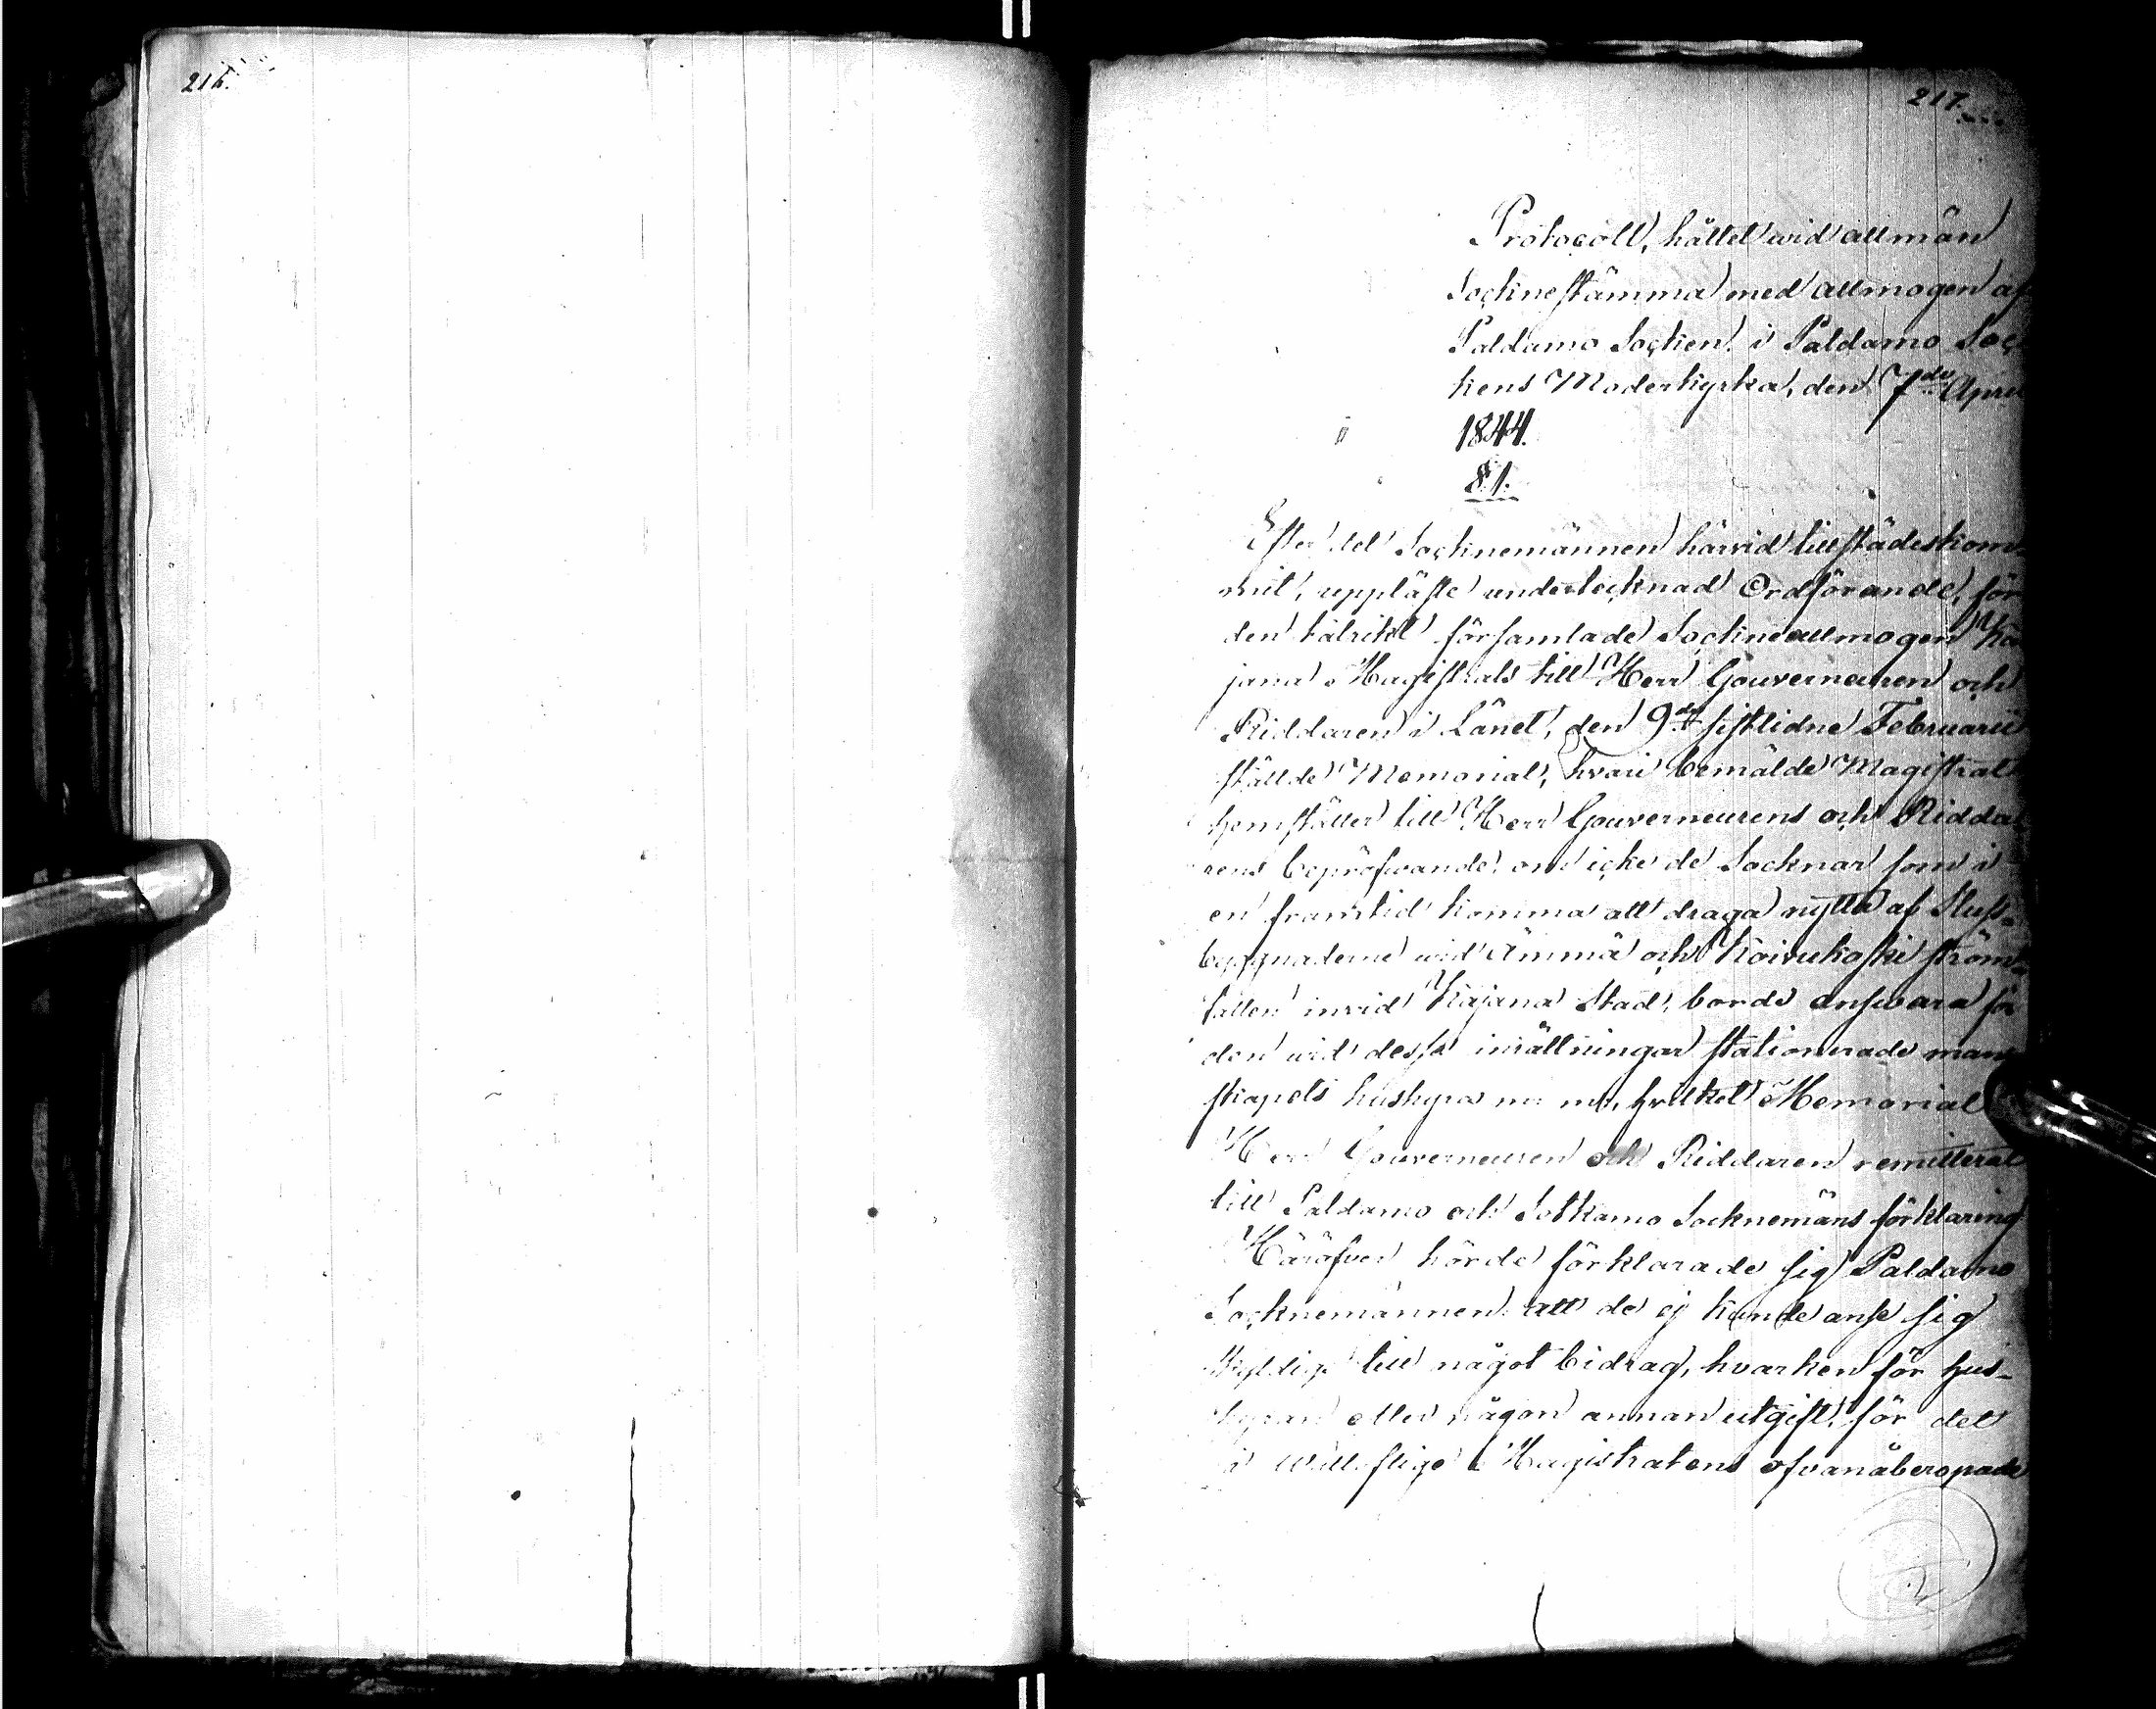 216.
217.
Protocoll, hållet wid allmän
Sockne stämma med allmogen af
Paldamo Socken i Paldamo Soc
kens Moderkyrka, den 7de April
1844.
§.1.
Efter det Socknemännen härvid tillstädeskom-
mit, uppläste undertecknad Ordförande, för
den talrikt församlade Sockneallmogen Ka
jana Magistrats till Herr Gouverneuren och
Riddaren i Länet, den 9de sistlidne Februarii
ställde Memorial, hvari bemälde Magistrat
hemställer till Herr Gouverneurens och Ridda
rens bepröfwande, om icke de Socknar som i
en framtid komma att draga nytta af Sluss-
byggnaderne wid Ämmä och Koivukoski ström-
fallen invid Kajana Stad, borde answara för
den wid dessa inrättningar stationerade man
skapets hushyra m m, hvilket Memorial
Herr Gouverneuren och Riddaren remitterat
till Paldamo och Sotkamo Socknemäns förklaring
Häröfver hörde förklarade sig Paldamo
Socknemännen att de ej kunde anse sig
skyldige till något bidrag, hvarken för hus-
hyran eller någon annan utgift, för det
i Wällofliga Magistratens ofvanåberopade